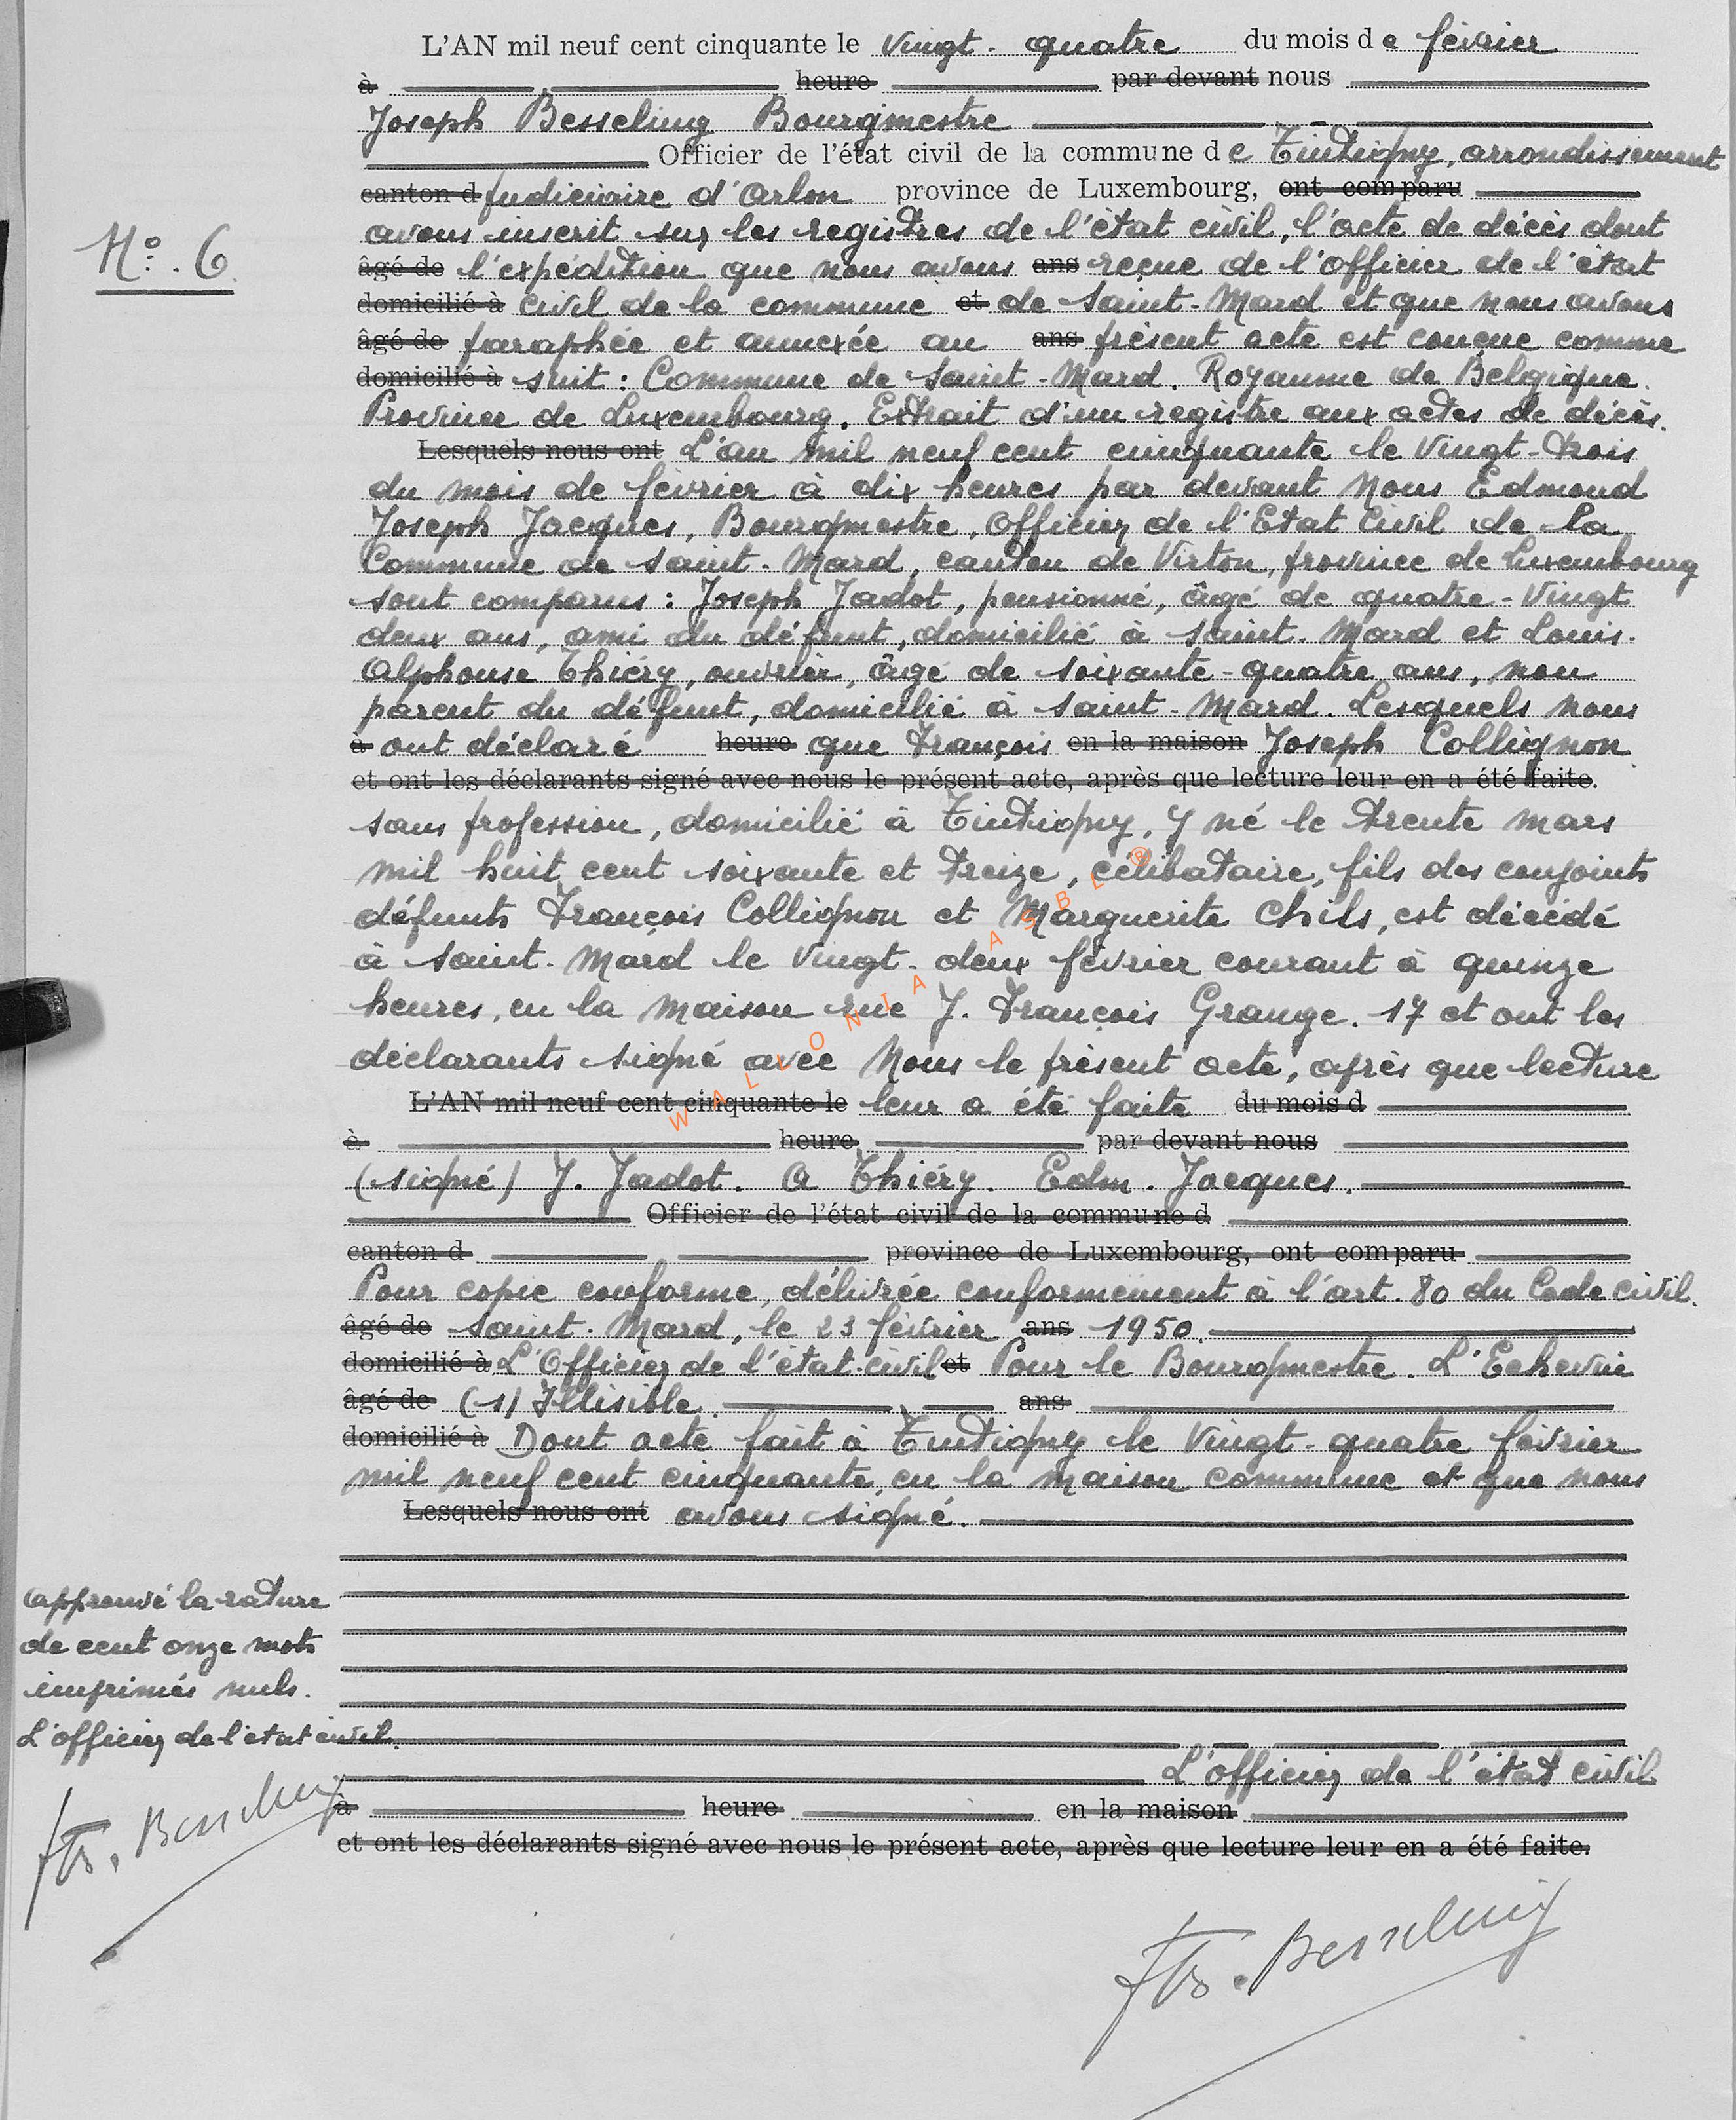 L'AN mil neuf cent cinquante le vingt-quatre du mois de février
à heure par devant nous
Joseph Besseling Bourgmestre
Officier de l'état civil de la commune de Tintigny, arrondissement
canton d judiciaire d'Arlon province de Luxembourg, ont comparu
N° 6
avons inscrit sur les registres de l'état civil, l'acte de décès dont
âgé de l'expédition que nous avons ans reçue de l'officier de l'état
domicilié à civil de la commune et de Saint-Mard et que nous avons
âgé de paraphée et annexée au ans présent acte est conçue comme
domicilié à suit : Commune de Saint-Mard. Royaume de Belgique.
Province de Luxembourg. Extrait d'un registre aux actes de décès.
Lesquels nous ont L'an mil neuf cent cinquante le vingt-trois
du mois de février à dix heures par devant Nous Edmond
Joseph Jacques, Bourgmestre, Officier de l'Etat Civil de la
Commune de Saint-Mard, canton de Virton, province de Luxembourg
sont comparus : Joseph Jadot, pensionné, âgé de quatre-vingt
deux ans, ami du défunt, domicilié à Saint-Mard et Louis-
Alphonse Thiéry, ouvrier, âgé de soixante-quatre ans, non
parent du défunt, domicilié à Saint-Mard. Lesquels nous
à ont déclaré heure que François en la maison Joseph Collignon
et ont les déclarants signé avec nous le présent acte, après que lecture leur en a été faite.
sans profession, domicilié à Tintigny, y né le trente mars
mil huit cent soixante et treize, célibataire, fils des conjoints
défunts François Collignon et Marguerite Chils, est décédé
à Saint-Mard le vingt-deux février courant à quinze
heures, en la maison rue J. François Grange. 17 et ont les
déclarants signé avec Nous le présent acte, après que lecture
L'AN mil neuf cent cinquante le leur a été faite du mois d
à heure par devant nous
(signé) J. Jadot. A Thiéry. Edm. Jacques.
Officier de l'état civil de la commune d
canton d province de Luxembourg, ont comparu
Pour copie conforme, délivrée conformément à l'art. 80 du Code civil.
âgé de Saint-Mard, le 23 février ans 1950.
domicilié à L'Officier de l'état-civil et Pour le Bourgmestre. L'Echevin
âgé de (s) Illisible. ans
domicilié à Dont acte fait à Tintigny le vingt-quatre février
mil neuf cent cinquante, en la maison commune et que nous
Lesquels nous ont avons signé.
approuvé la rature
de cent onze mots
imprimés nuls.
L'officier de l'état civil.
L'officier de l'état civil
à heure en la maison
et ont les déclarants signé avec nous le présent acte, après que lecture leur en a été faite.
Besseling
Besseling
WALLONIA ASBL ®